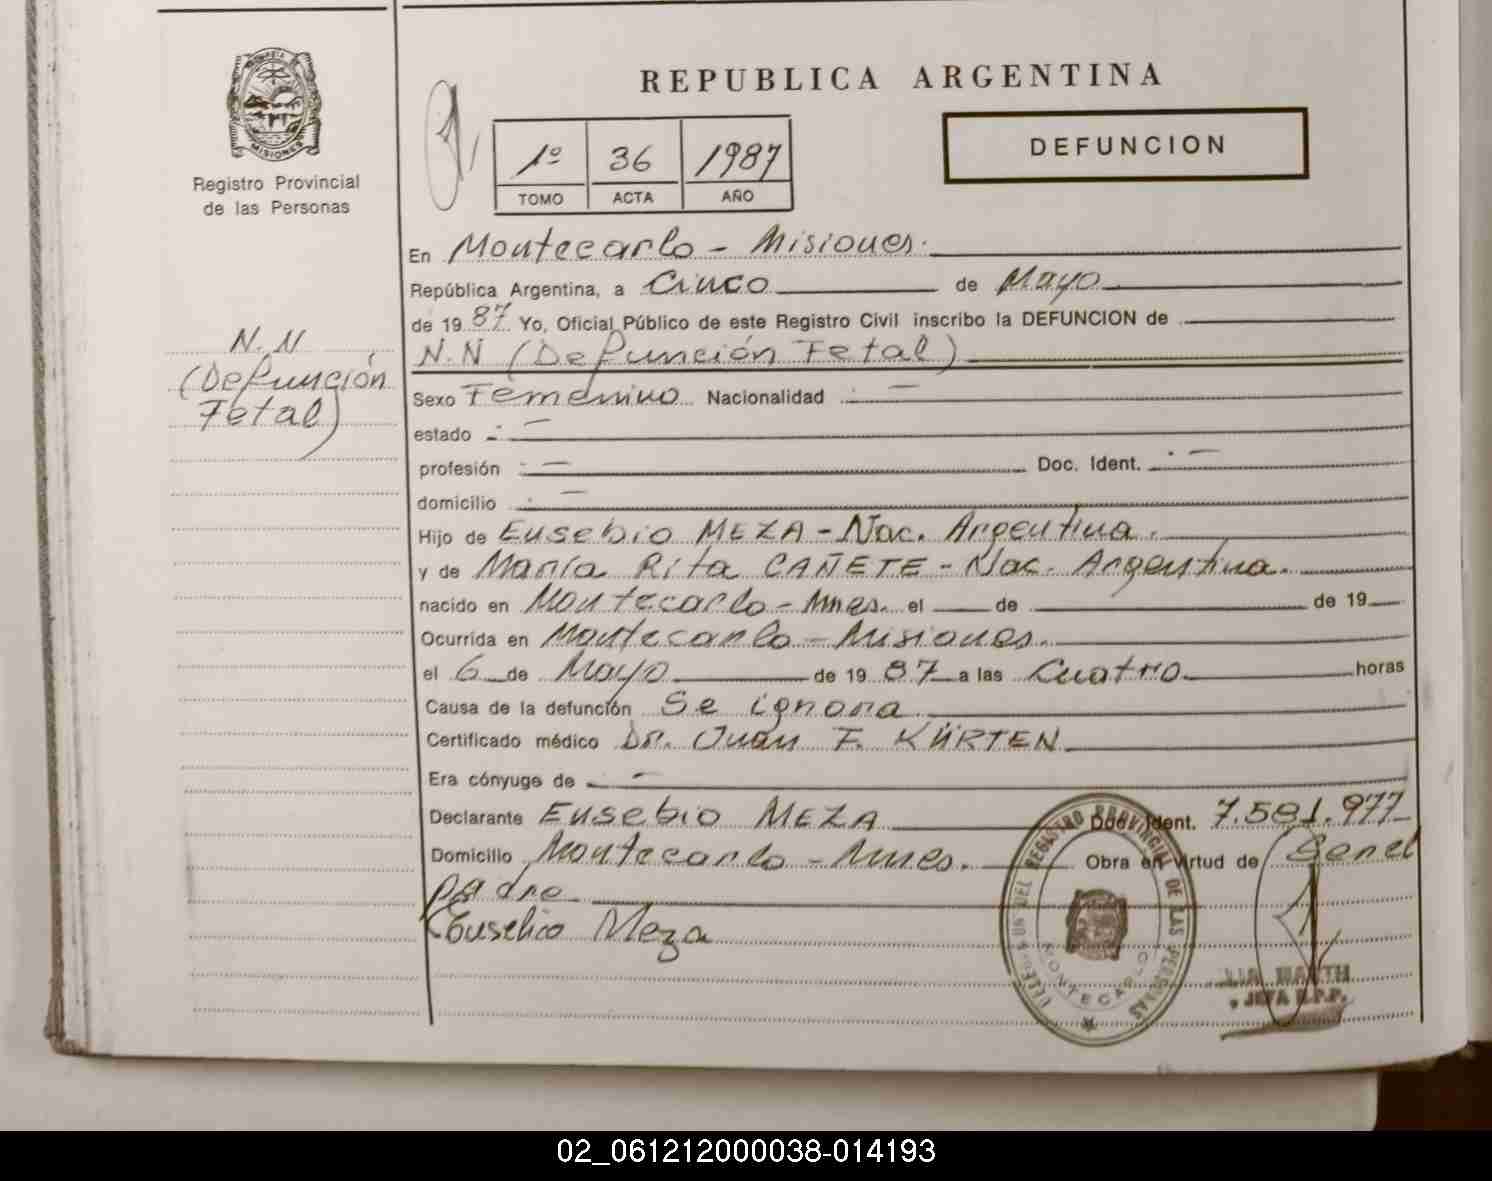 REPUBLICA ARGENTINA
MISIONES
Registro Provincial
de las Personas
1º 36 1987
TOMO ACTA AÑO
DEFUNCION
En Montecarlo - Misiones.
República Argentina, a Cinco de Mayo
de 19 87 Yo, Oficial Público de este Registro Civil inscribo la DEFUNCION de
N.N (Defunción Fetal)
N.N
(Defunción
Fetal)
Sexo Femenino Nacionalidad : —
estado : —
profesión : — Doc. Ident. : —
domicilio : —
Hijo de Eusebio MEZA - Nac. Argentina.
y de María Rita CAÑETE - Nac. Argentina.
nacido en Montecarlo - Mnes. el de de 19
Ocurrida en Montecarlo - Misiones.
el 6 de Mayo de 19 87 a las Cuatro horas
Causa de la defunción Se ignora
Certificado médico Dr. Juan F. KÜRTEN
Era cónyuge de —
Declarante EUSEBIO MEZA Doc. Ident. 7.581.977
Domicilio Montecarlo - Mnes. Obra en virtud de Ser el
padre
Eusebio Meza
REGISTRO PROVINCIAL DE LAS PERSONAS
MONTECARLO
JEFA R.P.P.
02_061212000038-014193